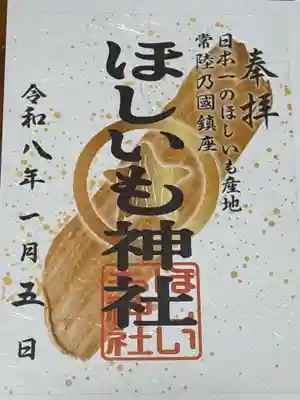 奉拝
日本一のほしいも産地
常陸乃國鎮座
ほしいも神社
令和八年一月五日
ほしい
も神社